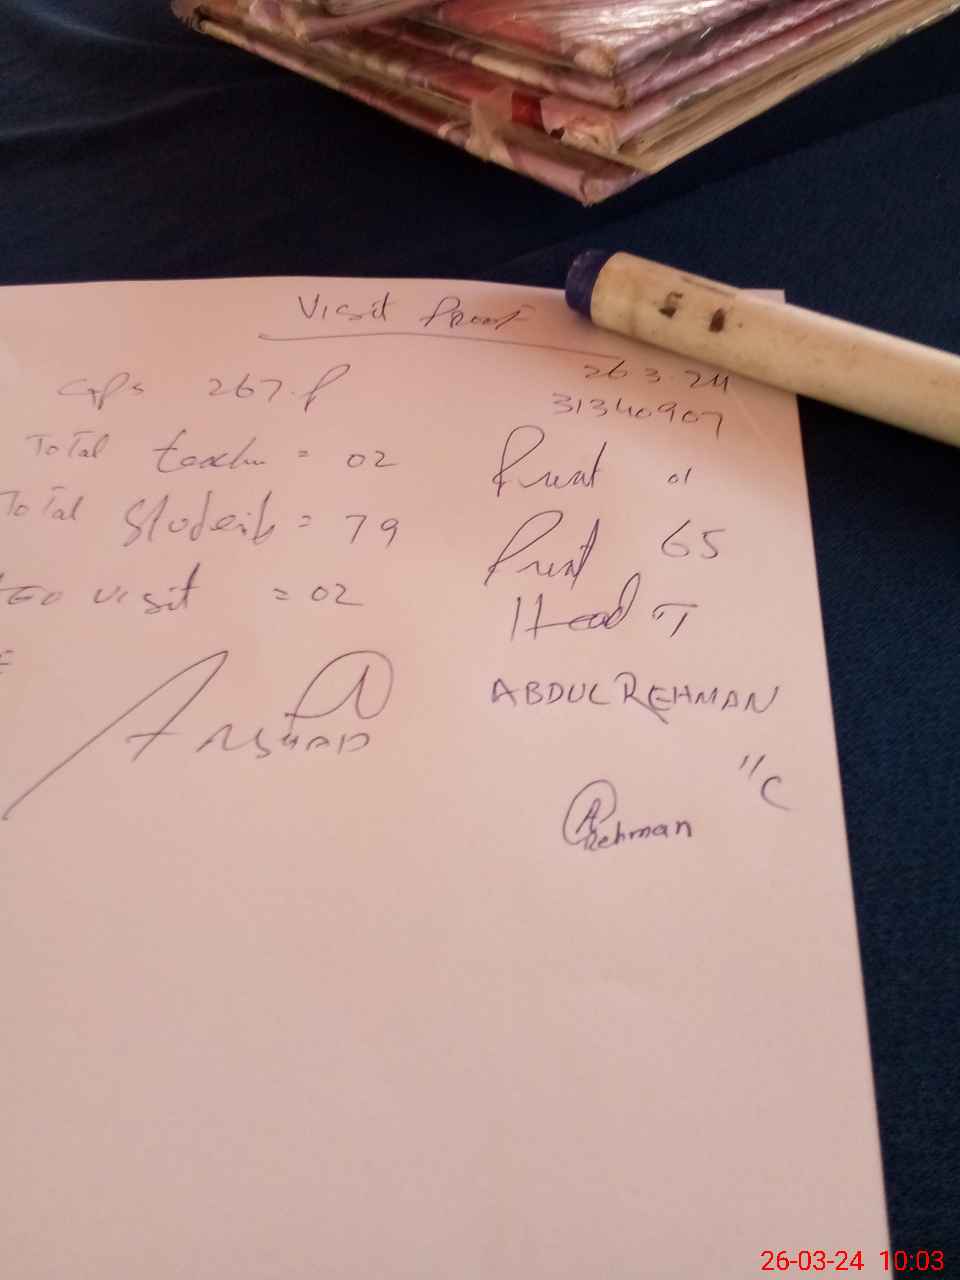 Visit Proof
26.3.24
GPS 267.P
31340907
Total teacher = 02 Prest 01
Total Students = 79 Prest 65
visit = 02
Head T
ARSHAD
ABDUL REHMAN
"C
A Rehman
26-03-24 10:03